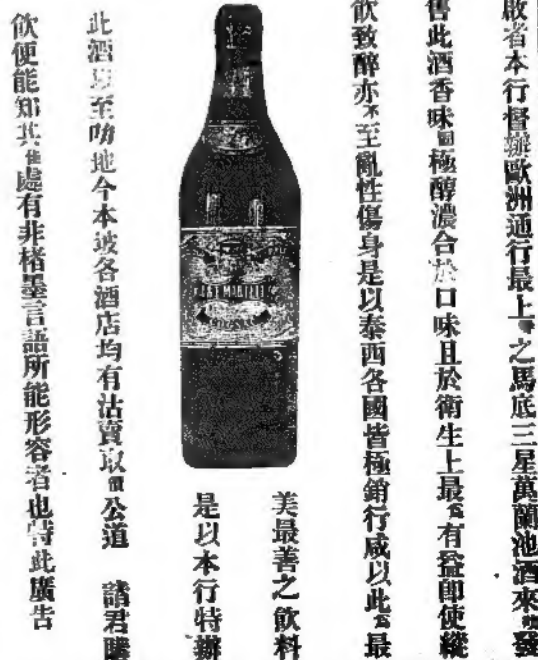 啟者本行督辦歐洲通行最上之馬底三星萬蘭池酒來發
售此酒香味極醇濃合於口味且於衛生上最爲有益即使縱
飲致醉亦不至亂性傷身是以泰西各國皆極銷行咸以此爲最
美最善之飲料
是以本行特辦
此酒以至叻地今本坡各酒店均有沽賣取價公道 諸君購
飲便能知其佳處有非楮墨言語所能形容者也特此廣告